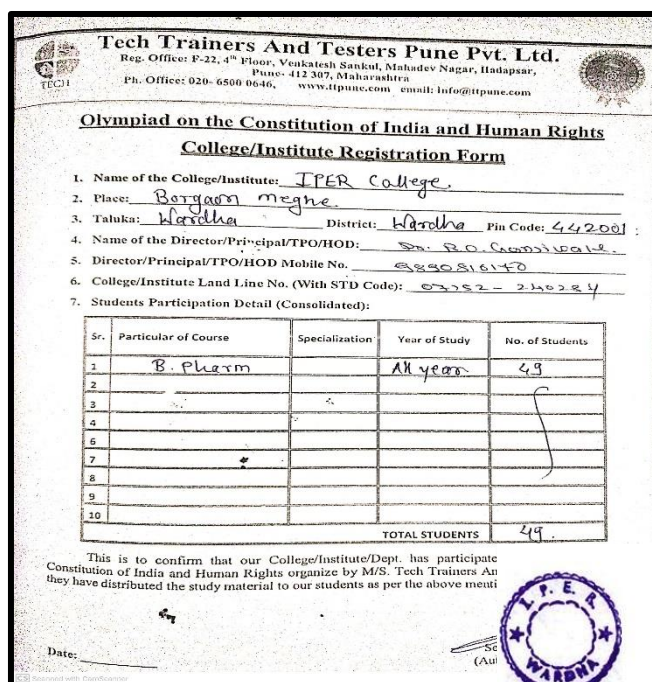 TECH
Tech Trainers And Testers Pune Pvt. Ltd.
Reg. Office: F-22, 4th Floor, Venkatesh Sankul, Mahadev Nagar, Hadapsar,
Pune- 412 307, Maharashtra
Ph. Office: 020- 6500 0646, www.ttpune.com email: info@ttpune.com
Olympiad on the Constitution of India and Human Rights
College/Institute Registration Form
1. Name of the College/Institute: IPER College.
2. Place: Borgaon meghe.
3. Taluka: Wardha District: Wardha Pin Code: 442001
4. Name of the Director/Principal/TPO/HOD: Dr. R.O.
5. Director/Principal/TPO/HOD Mobile No.
6. College/Institute Land Line No. (With STD Code): 07152 - 240284
7. Students Participation Detail (Consolidated):
Sr. Particular of Course Specialization Year of Study No. of Students
1 B. Pharm All year 49
2
3
4
6
7
8
9
10
TOTAL STUDENTS 49.
This is to confirm that our College/Institute/Dept. has participate
Constitution of India and Human Rights organize by M/S. Tech Trainers An
they have distributed the study material to our students as per the above menti
I. P. E. R.
WARDHA
Se
(Aut
Date:
CS Scanned with CamScanner